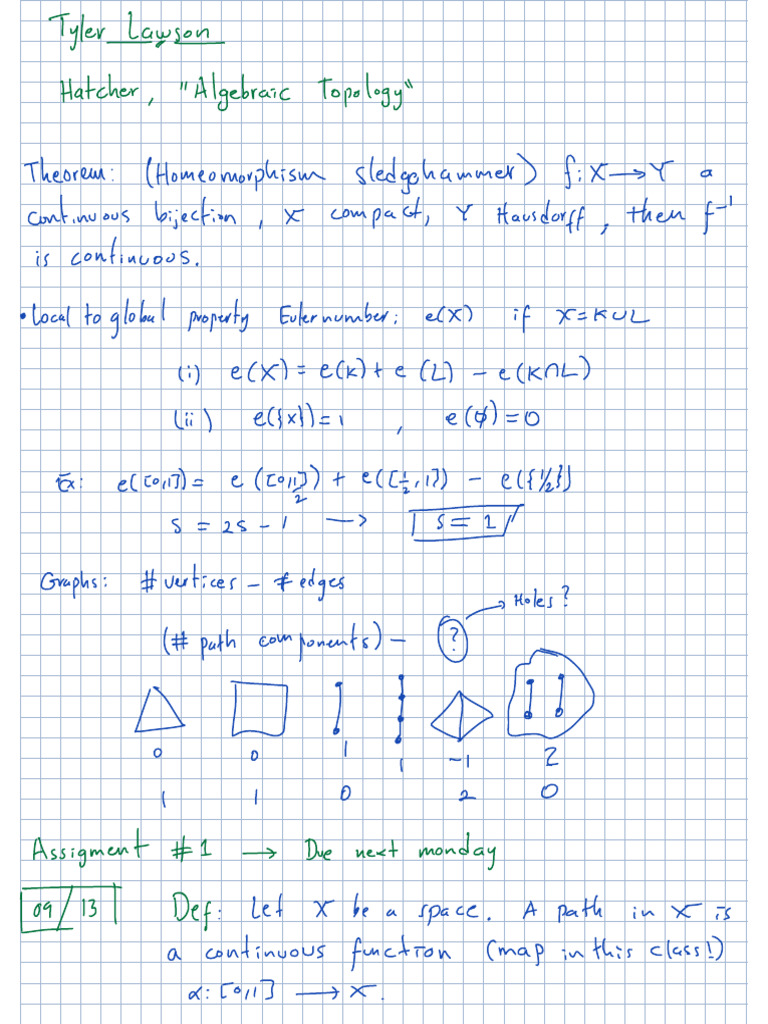 Tyler Lawson
Hatcher, "Algebraic Topology"
Theorem: (Homeomorphism sledgehammer) f: X → Y a
continuous bijection, X compact, Y Hausdorff, then f⁻¹
is continuous.
• Local to global property Euler number: e(X) if X = K ∪ L
(i) e(X) = e(K) + e(L) - e(K∩L)
(ii) e({x}) = 1, e(∅) = 0
Ex: e([0,1]) = e([0,1/2]) + e([1/2,1]) - e({1/2})
s = 2s - 1 → s = 1
Graphs: # vertices - # edges
→ Holes?
(# path components) - ?
0 0 1 1 -1 2
1 1 0 2 0
Assigment #1 → Due next monday
09/13 Def: Let X be a space. A path in X is
a continuous function (map in this class!)
α: [0,1] → X.